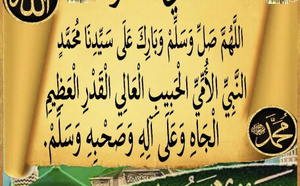 الله
اللَّهُمَّ صَلِّ وَسَلِّمْ وَبَارِكْ عَلَى سَيِّدِنَا مُحَمَّدٍ
النَّبِيِّ الْأُمِّيِّ الْحَبِيبِ الْعَالِي الْقَدْرِ الْعَظِيمِ
الْجَاهِ وَعَلَى آلِهِ وَصَحْبِهِ وَسَلِّمْ.
محمد